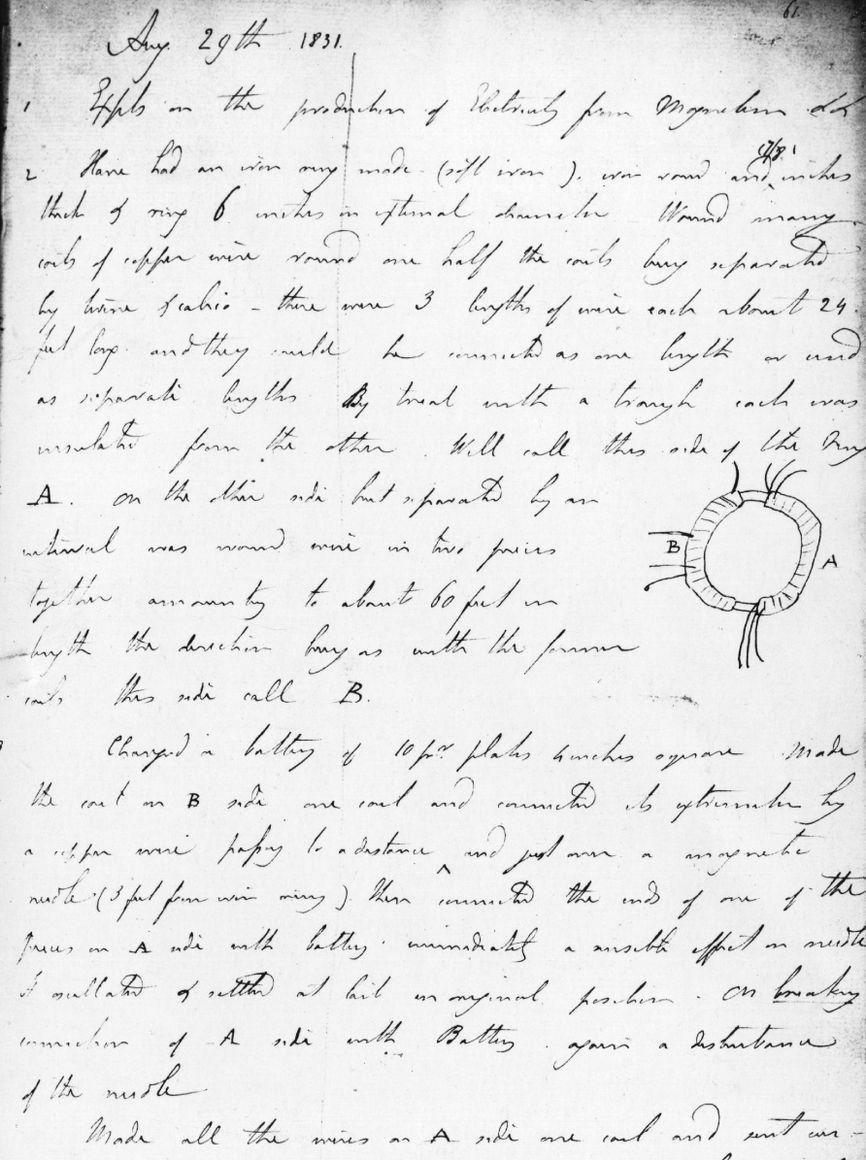 61
Aug 29th 1831.
1 Expts on the production of Electricity from Magnetism &c &c
2 Have had an iron ring made (soft iron). iron round and 7/8 inches
thick & ring 6 inches in external diameter Wound many
coils of copper wire round one half the coils being separated
by twine & calico - there were 3 lengths of wire each about 24
feet long and they could be connected as one length or used
as separate lengths By trial with a trough each was
insulated from the other. Will call this side of the ring
A. On the other side but separated by an
interval was wound wire in two pieces
together amounting to about 60 feet in
length the direction being as with the former
coils this side call B.
B
A
3 Charged a battery of 10 pr. plates 4 inches square Made
the coil on B side one coil and connected its extremities by
a copper wire passing to a distance and just over a magnetic
needle (3 feet from iron ring) then connected the ends of one of the
pieces on A side with battery immediately a sensible effect on needle
It oscillated & settled at last in original position. On breaking
connection of A side with Battery again a disturbance
of the needle
Made all the wires on A side one coil and sent cur-